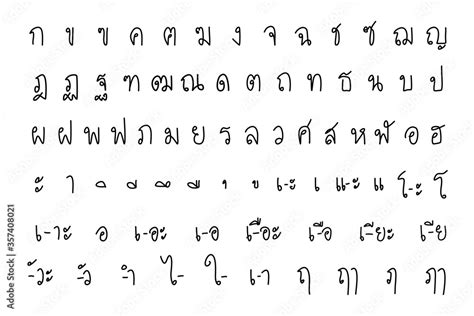 ก ข ฃ ค ฅ ฆ ง จ ฉ ช ซ ฌ ญ
ฎ ฏ ฐ ฑ ฒ ณ ด ต ถ ท ธ น บ ป
ผ ฝ พ ฟ ภ ม ย ร ล ว ศ ส ห ฬ อ ฮ
ะ า ิ ี ึ ื ุ ู เ-ะ เ แ-ะ แ โ-ะ โ
เ-าะ อ เ-อะ เ-อ เ-ือะ เ-ือ เ-ียะ เ-ีย
-ัวะ -ัว -ำ ไ- ใ- เ-า ฤ ฤๅ ฦ ฦๅ
Adobe Stock | #357408021